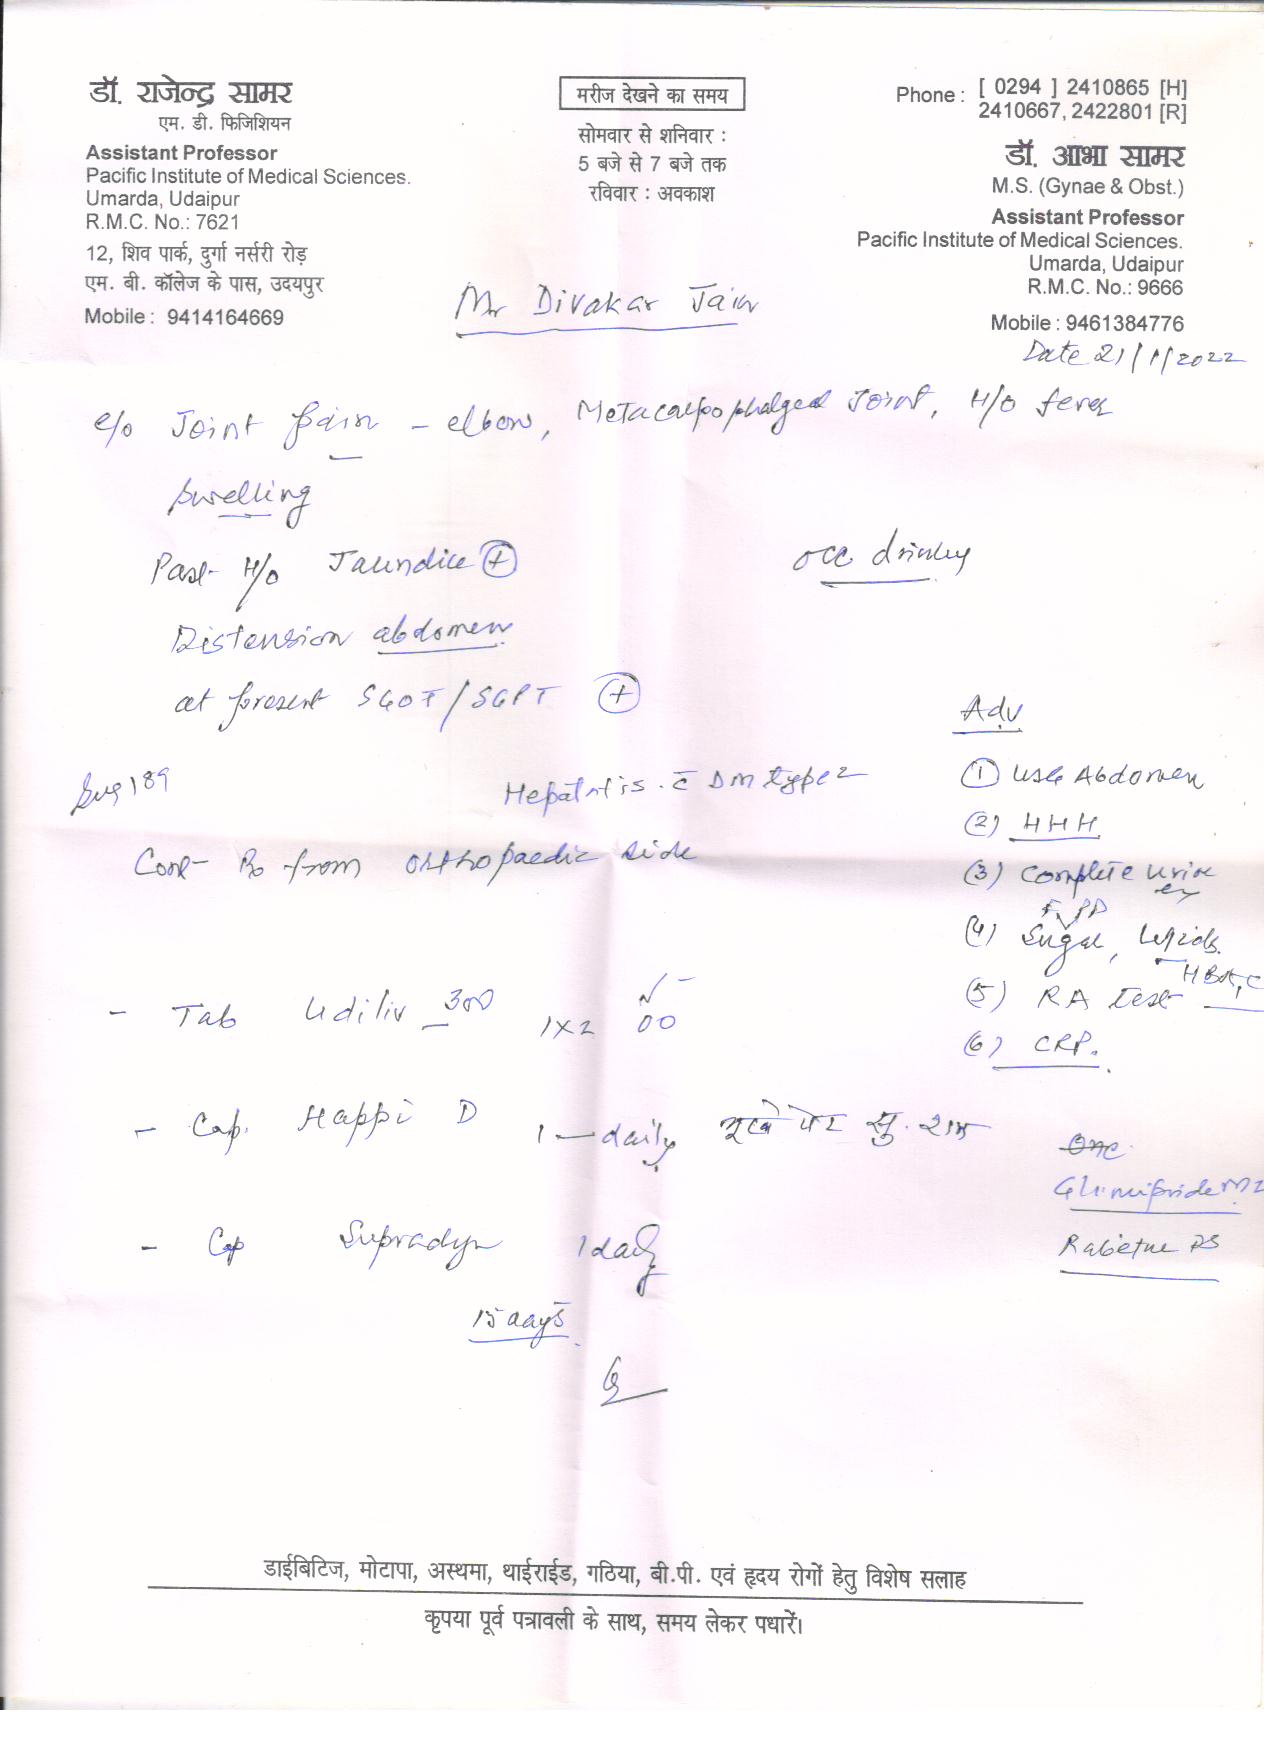 डॉ. राजेन्द्र सामर
एम. डी. फिजिशियन
Assistant Professor
Pacific Institute of Medical Sciences.
Umarda, Udaipur
R.M.C. No.: 7621
12, शिव पार्क, दुर्गा नर्सरी रोड़
एम. बी. कॉलेज के पास, उदयपुर
Mobile : 9414164669
मरीज देखने का समय
सोमवार से शनिवार :
5 बजे से 7 बजे तक
रविवार : अवकाश
Phone : [ 0294 ] 2410865 [H]
2410667, 2422801 [R]
डॉ. आभा सामर
M.S. (Gynae & Obst.)
Assistant Professor
Pacific Institute of Medical Sciences.
Umarda, Udaipur
R.M.C. No.: 9666
Mobile : 9461384776
Mr Divakar Jain
Date 21/1/2022
c/o Joint pain - elbow, Metacarpophalgeal Joint, H/o fever
swelling
Past H/o Jaundice +
occ. drinking
Distension abdomen
at present SGOT/SGPT +
Adv
189
Hepatitis c̄ DM type 2
(1) USG Abdomen
(2) HHH
Cont Rx from orthopaedic side
(3) Complete urine
F, PP
(4) Sugar, Lipids
(5) RA test
(6) CRP.
- Tab Udiliv 300 1x2
- Cap. Happi D 1 - daily भूखे पेट सु. शाम
Glimipride M2
- Cap Supradyn 1 daily
15 days
डाईबिटिज, मोटापा, अस्थमा, थाईराईड, गठिया, बी.पी. एवं हृदय रोगों हेतु विशेष सलाह
कृपया पूर्व पत्रावली के साथ, समय लेकर पधारें।